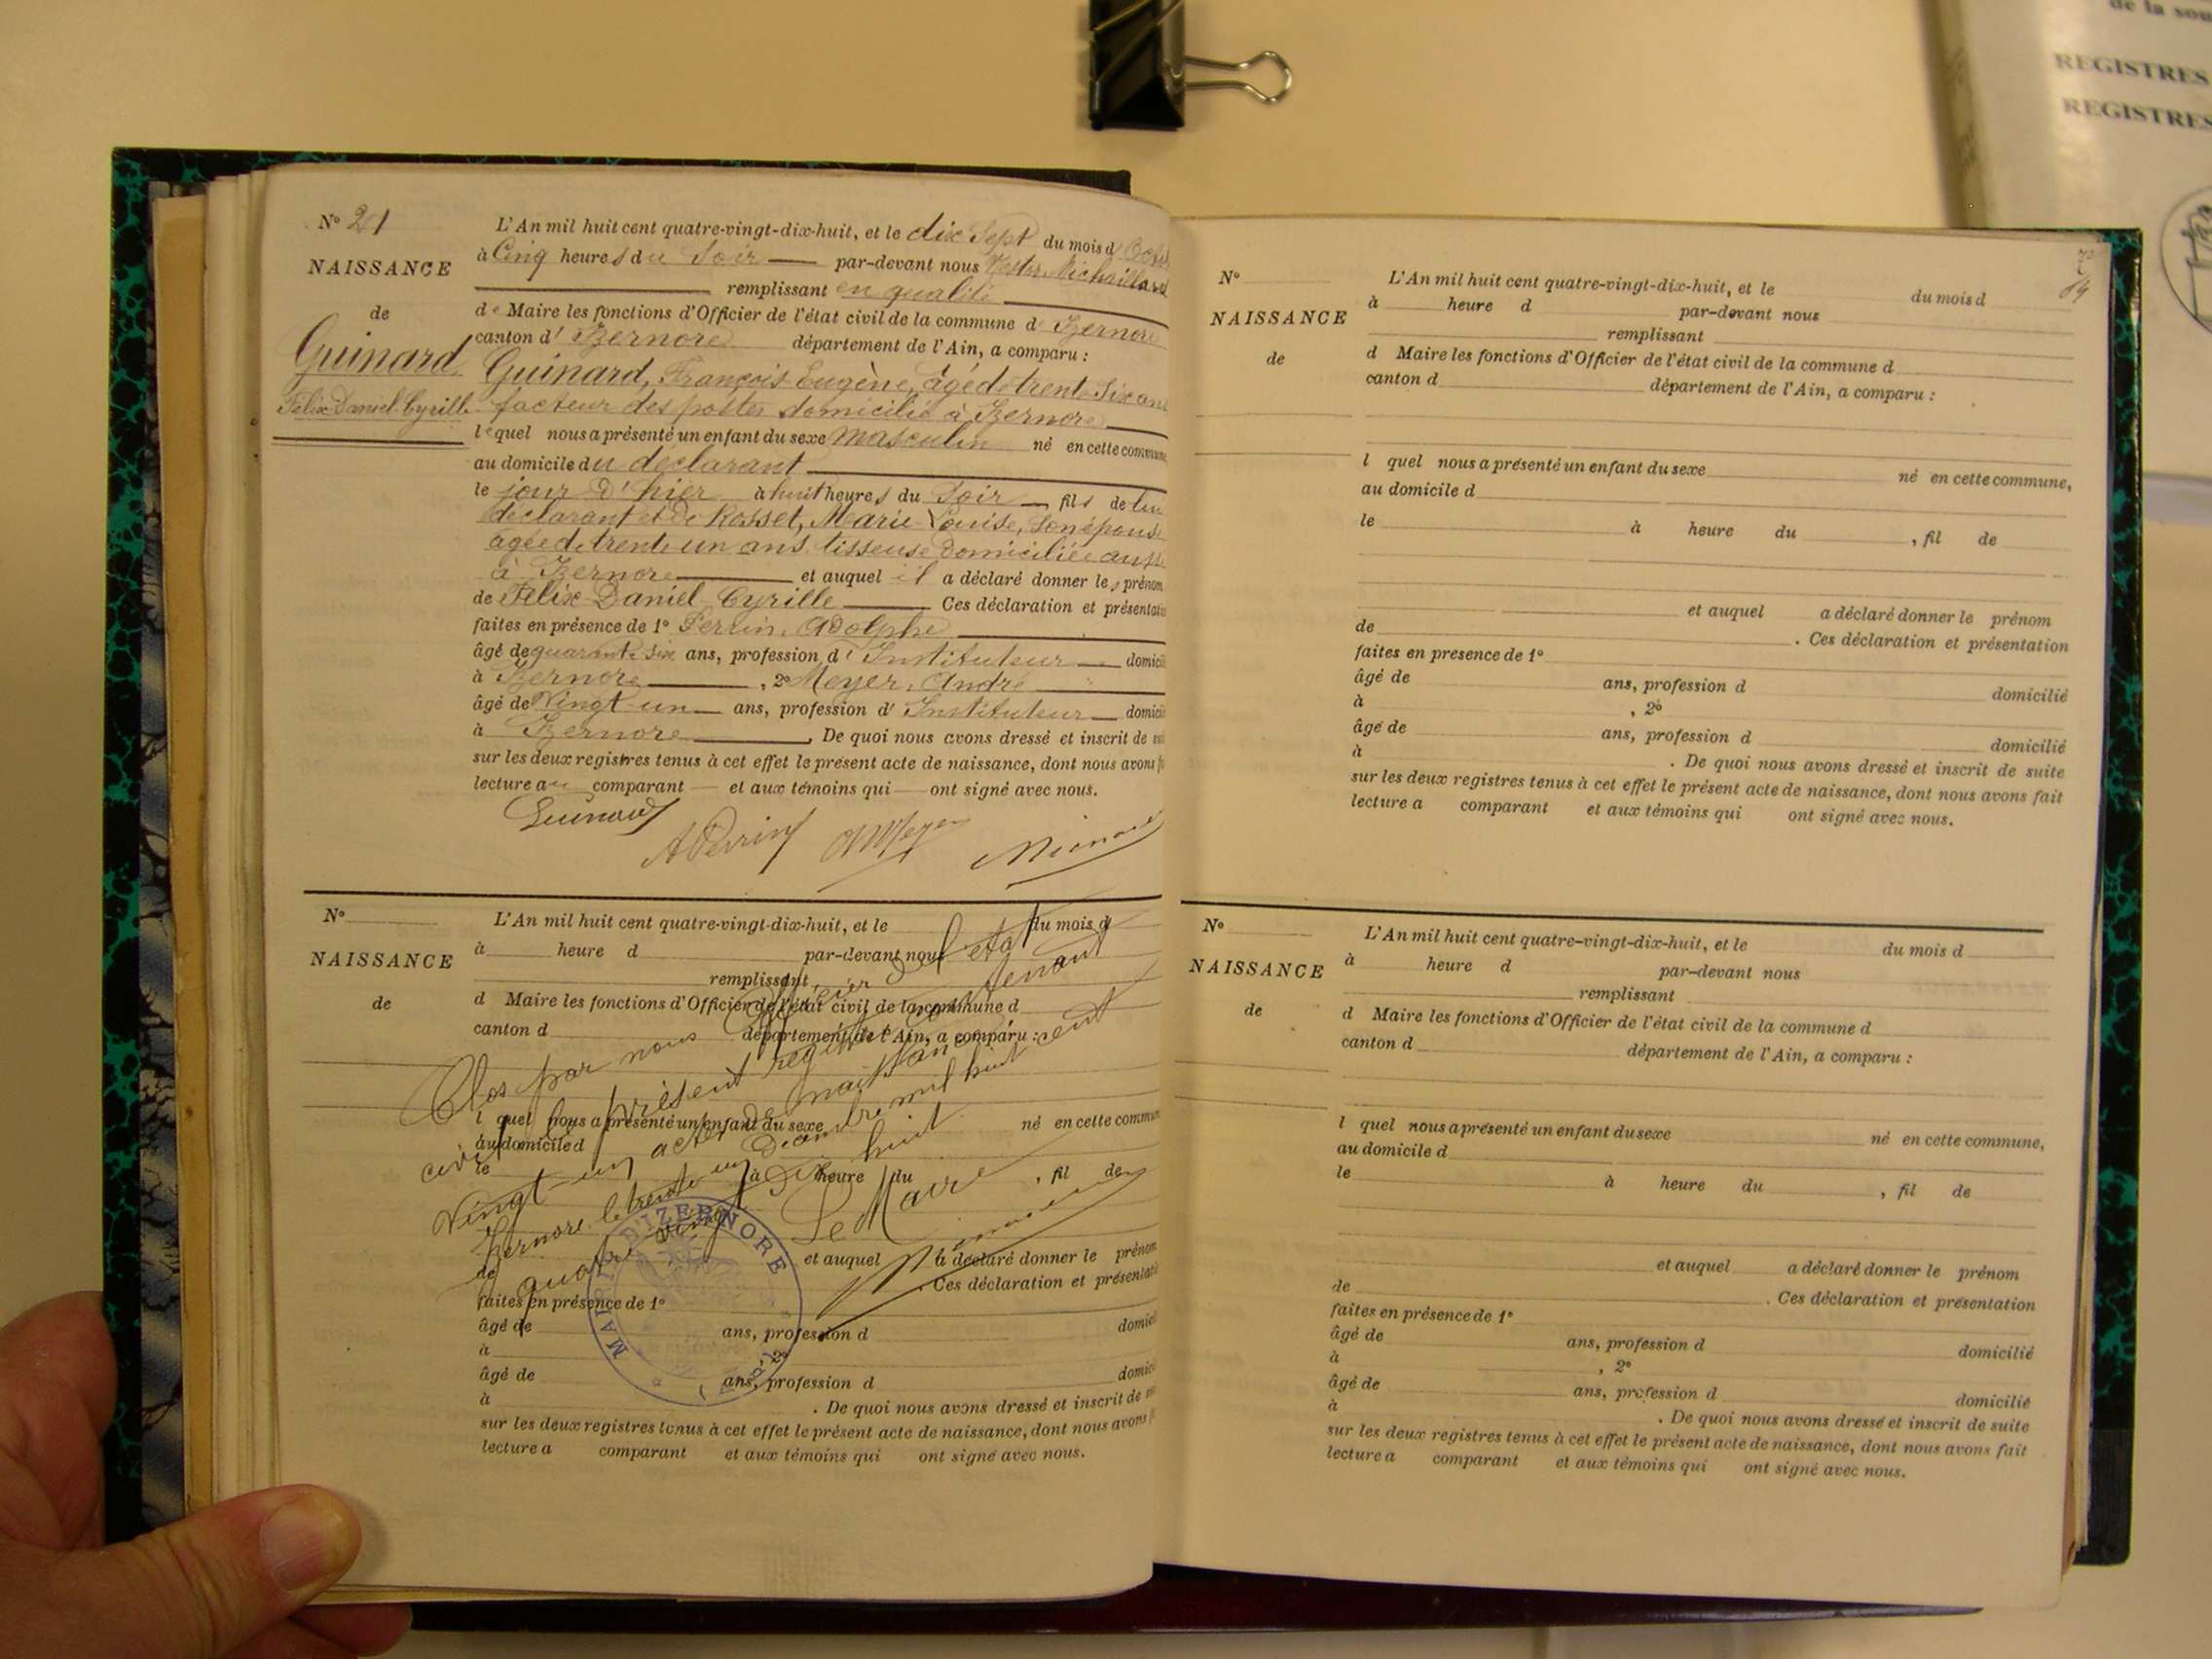 de la sou
REGISTRES
REGISTRES
N° 21
NAISSANCE
de
Guinard
Félix Daniel Cyrille
L'An mil huit cent quatre-vingt-dix-huit, et le dix Sept du mois d'
à Cinq heures du Soir par-devant nous
remplissant en qualité
de Maire les fonctions d'Officier de l'état civil de la commune d' Izernore
canton d' Izernore département de l'Ain, a comparu :
Guinard, François Eugène, âgé de trente Six ans
facteur des postes domicilié à Izernore
lequel nous a présenté un enfant du sexe masculin né en cette commune
au domicile du déclarant
le jour d'hier à huit heures du Soir fils de lui
déclarant et de Rosset, Marie Louise, Son épouse
agée de trente un ans tisseuse domiciliée aussi
à Izernore et auquel il a déclaré donner les prénom
de Félix Daniel Cyrille Ces déclaration et présentation
faites en présence de 1° Perrin, Adolphe
âgé de quarante six ans, profession d' Instituteur domicil
à Izernore, 2° Meyer, André
âgé de Vingt un ans, profession d' Instituteur domicil
à Izernore. De quoi nous avons dressé et inscrit de
sur les deux registres tenus à cet effet le présent acte de naissance, dont nous avons
lecture au comparant et aux témoins qui ont signé avec nous.
Guinard
A Perrin A Meyer
N°
NAISSANCE
de
L'An mil huit cent quatre-vingt-dix-huit, et le du mois d
à heure d par-devant nous
remplissant
d Maire les fonctions d'Officier de l'état civil de la commune d
canton d département de l'Ain, a comparu :
l quel nous a présenté un enfant du sexe né en cette commune
au domicile d
le à heure du , fil de
et auquel a déclaré donner le prénom
de Ces déclaration et présentati
faites en présence de 1°
âgé de ans, profession d domici
à , 2°
âgé de ans, profession d domici
à . De quoi nous avons dressé et inscrit de
sur les deux registres tenus à cet effet le présent acte de naissance, dont nous avons
lecture a comparant et aux témoins qui ont signé avec nous.
Clos par nous Officier de l'état
civil le présent registre contenant
Vingt-un actes de naissance
Izernore le trente un Décembre mil huit cent
quatre vingt dix huit
Le Maire
MAIRIE D'IZERNORE
(AIN)
N°
NAISSANCE
de
L'An mil huit cent quatre-vingt-dix-huit, et le du mois d
à heure d par-devant nous
remplissant
d Maire les fonctions d'Officier de l'état civil de la commune d
canton d département de l'Ain, a comparu :
l quel nous a présenté un enfant du sexe né en cette commune,
au domicile d
le à heure du , fil de
et auquel a déclaré donner le prénom
de . Ces déclaration et présentation
faites en presence de 1°
âgé de ans, profession d domicilié
à , 2°
âgé de ans, profession d domicilié
à . De quoi nous avons dressé et inscrit de suite
sur les deux registres tenus à cet effet le présent acte de naissance, dont nous avons fait
lecture a comparant et aux témoins qui ont signé avec nous.
N°
NAISSANCE
de
L'An mil huit cent quatre-vingt-dix-huit, et le du mois d
à heure d par-devant nous
remplissant
d Maire les fonctions d'Officier de l'état civil de la commune d
canton d département de l'Ain, a comparu :
l quel nous a présenté un enfant du sexe né en cette commune,
au domicile d
le à heure du , fil de
et auquel a déclaré donner le prénom
de . Ces déclaration et présentation
faites en présence de 1°
âgé de ans, profession d domicilié
à , 2°
âgé de ans, profession d domicilié
à . De quoi nous avons dressé et inscrit de suite
sur les deux registres tenus à cet effet le présent acte de naissance, dont nous avons fait
lecture a comparant et aux témoins qui ont signé avec nous.